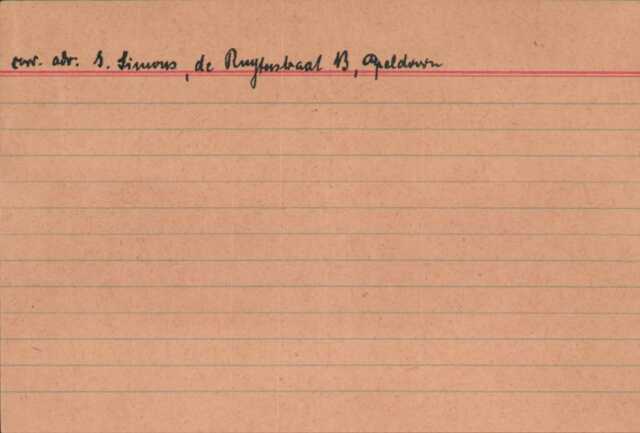 corr. adr. S. Simons, de Ruyterstraat 13, Apeldoorn